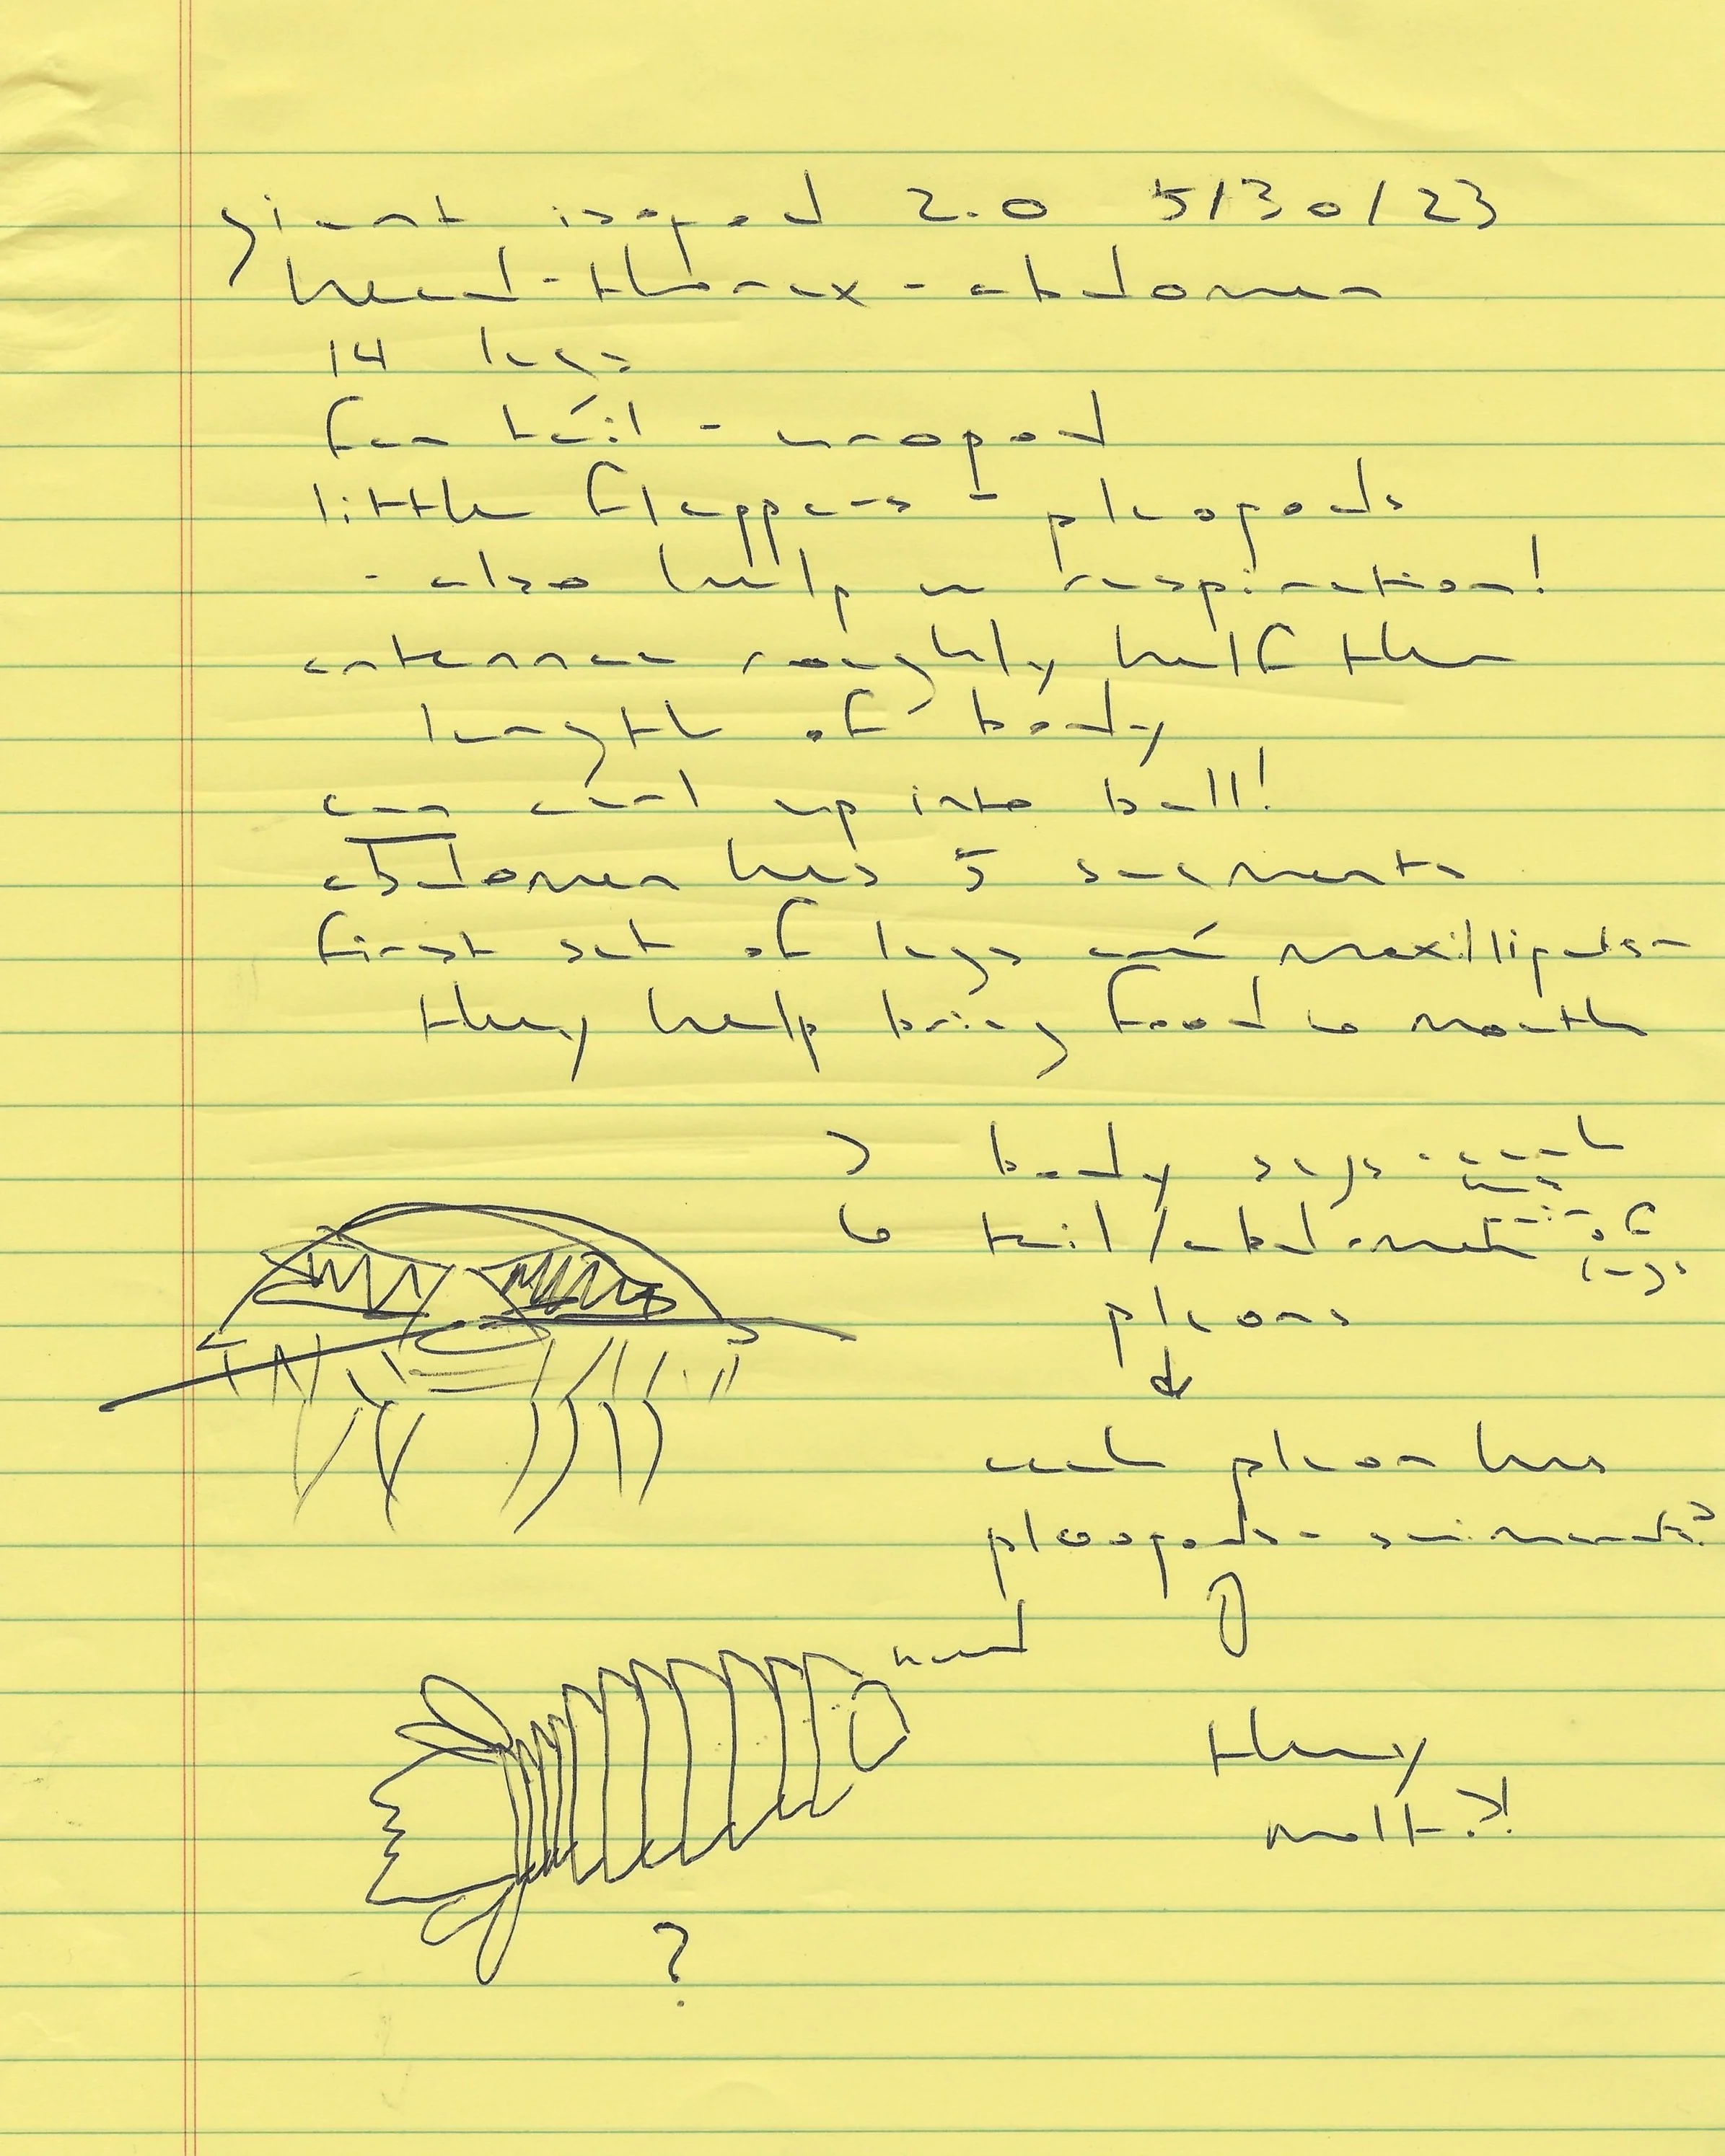 giant isopod 2.0 5/30/23
head - thorax - abdomen
14 legs
fan tail - uropod
little flappers - pleopods
- also help w respiration!
antennae roughly half the
length of body
can curl up into ball!
abdomen has 5 segments
first set of legs are maxillipeds -
they help bring food to mouth
7 body segs - each
has
pair of
legs
6 tail/abdomen
pleons
each pleon has
pleopods - swimmerets?
head
they
molt?!
?